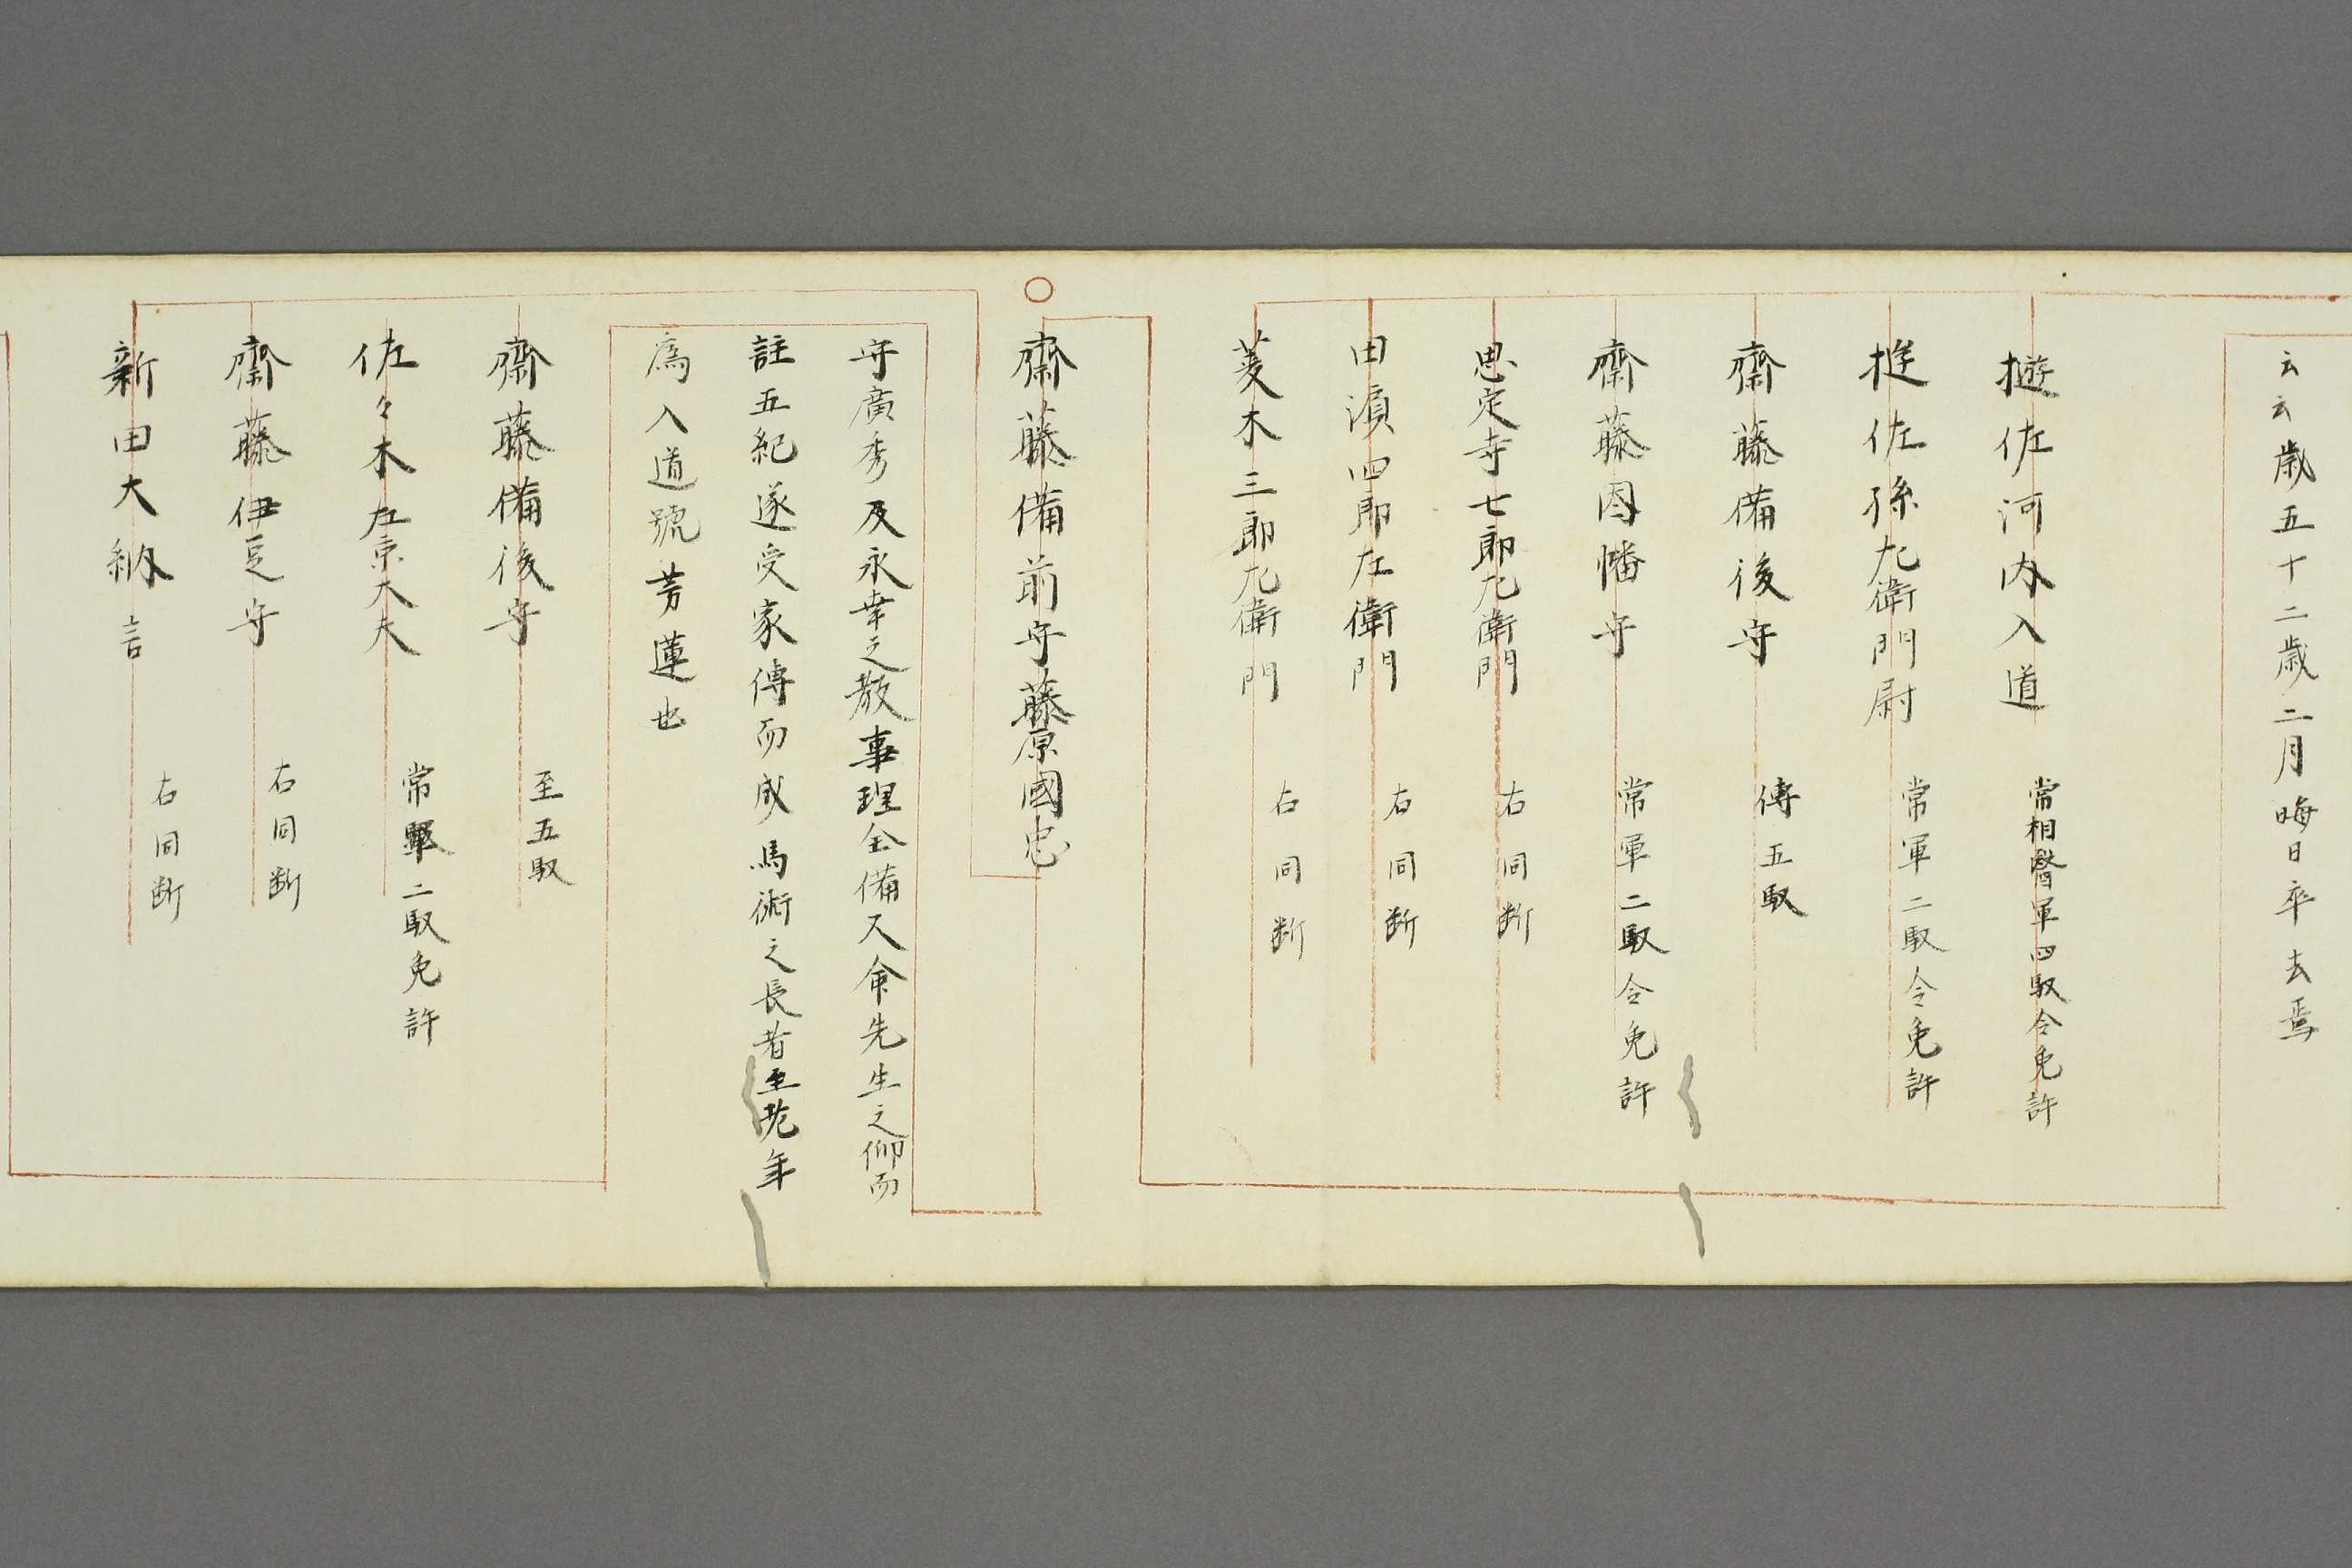 云云歳五十二歳二月晦日卒去焉
遊佐河内入道 常相醫軍四馭令免許
遊佐孫九衛門尉 常軍二馭令免許
齋藤備後守 傳五馭
齋藤因幡守 常軍二馭令免許
思定寺七郎九衛門 右同断
田濵四郎左衛門 右同断
菱木三郎九衛門 右同断
齋藤備前守藤原國忠
守廣秀及永幸之教事理全備又命先生之仰而
註五紀遂受家傳而成馬術之長者至老年
為入道號芳蓮也
齋藤備後守 至五馭
佐々木左京大夫 常軍二馭免許
齋藤伊豆守 右同断
新田大納言 右同断